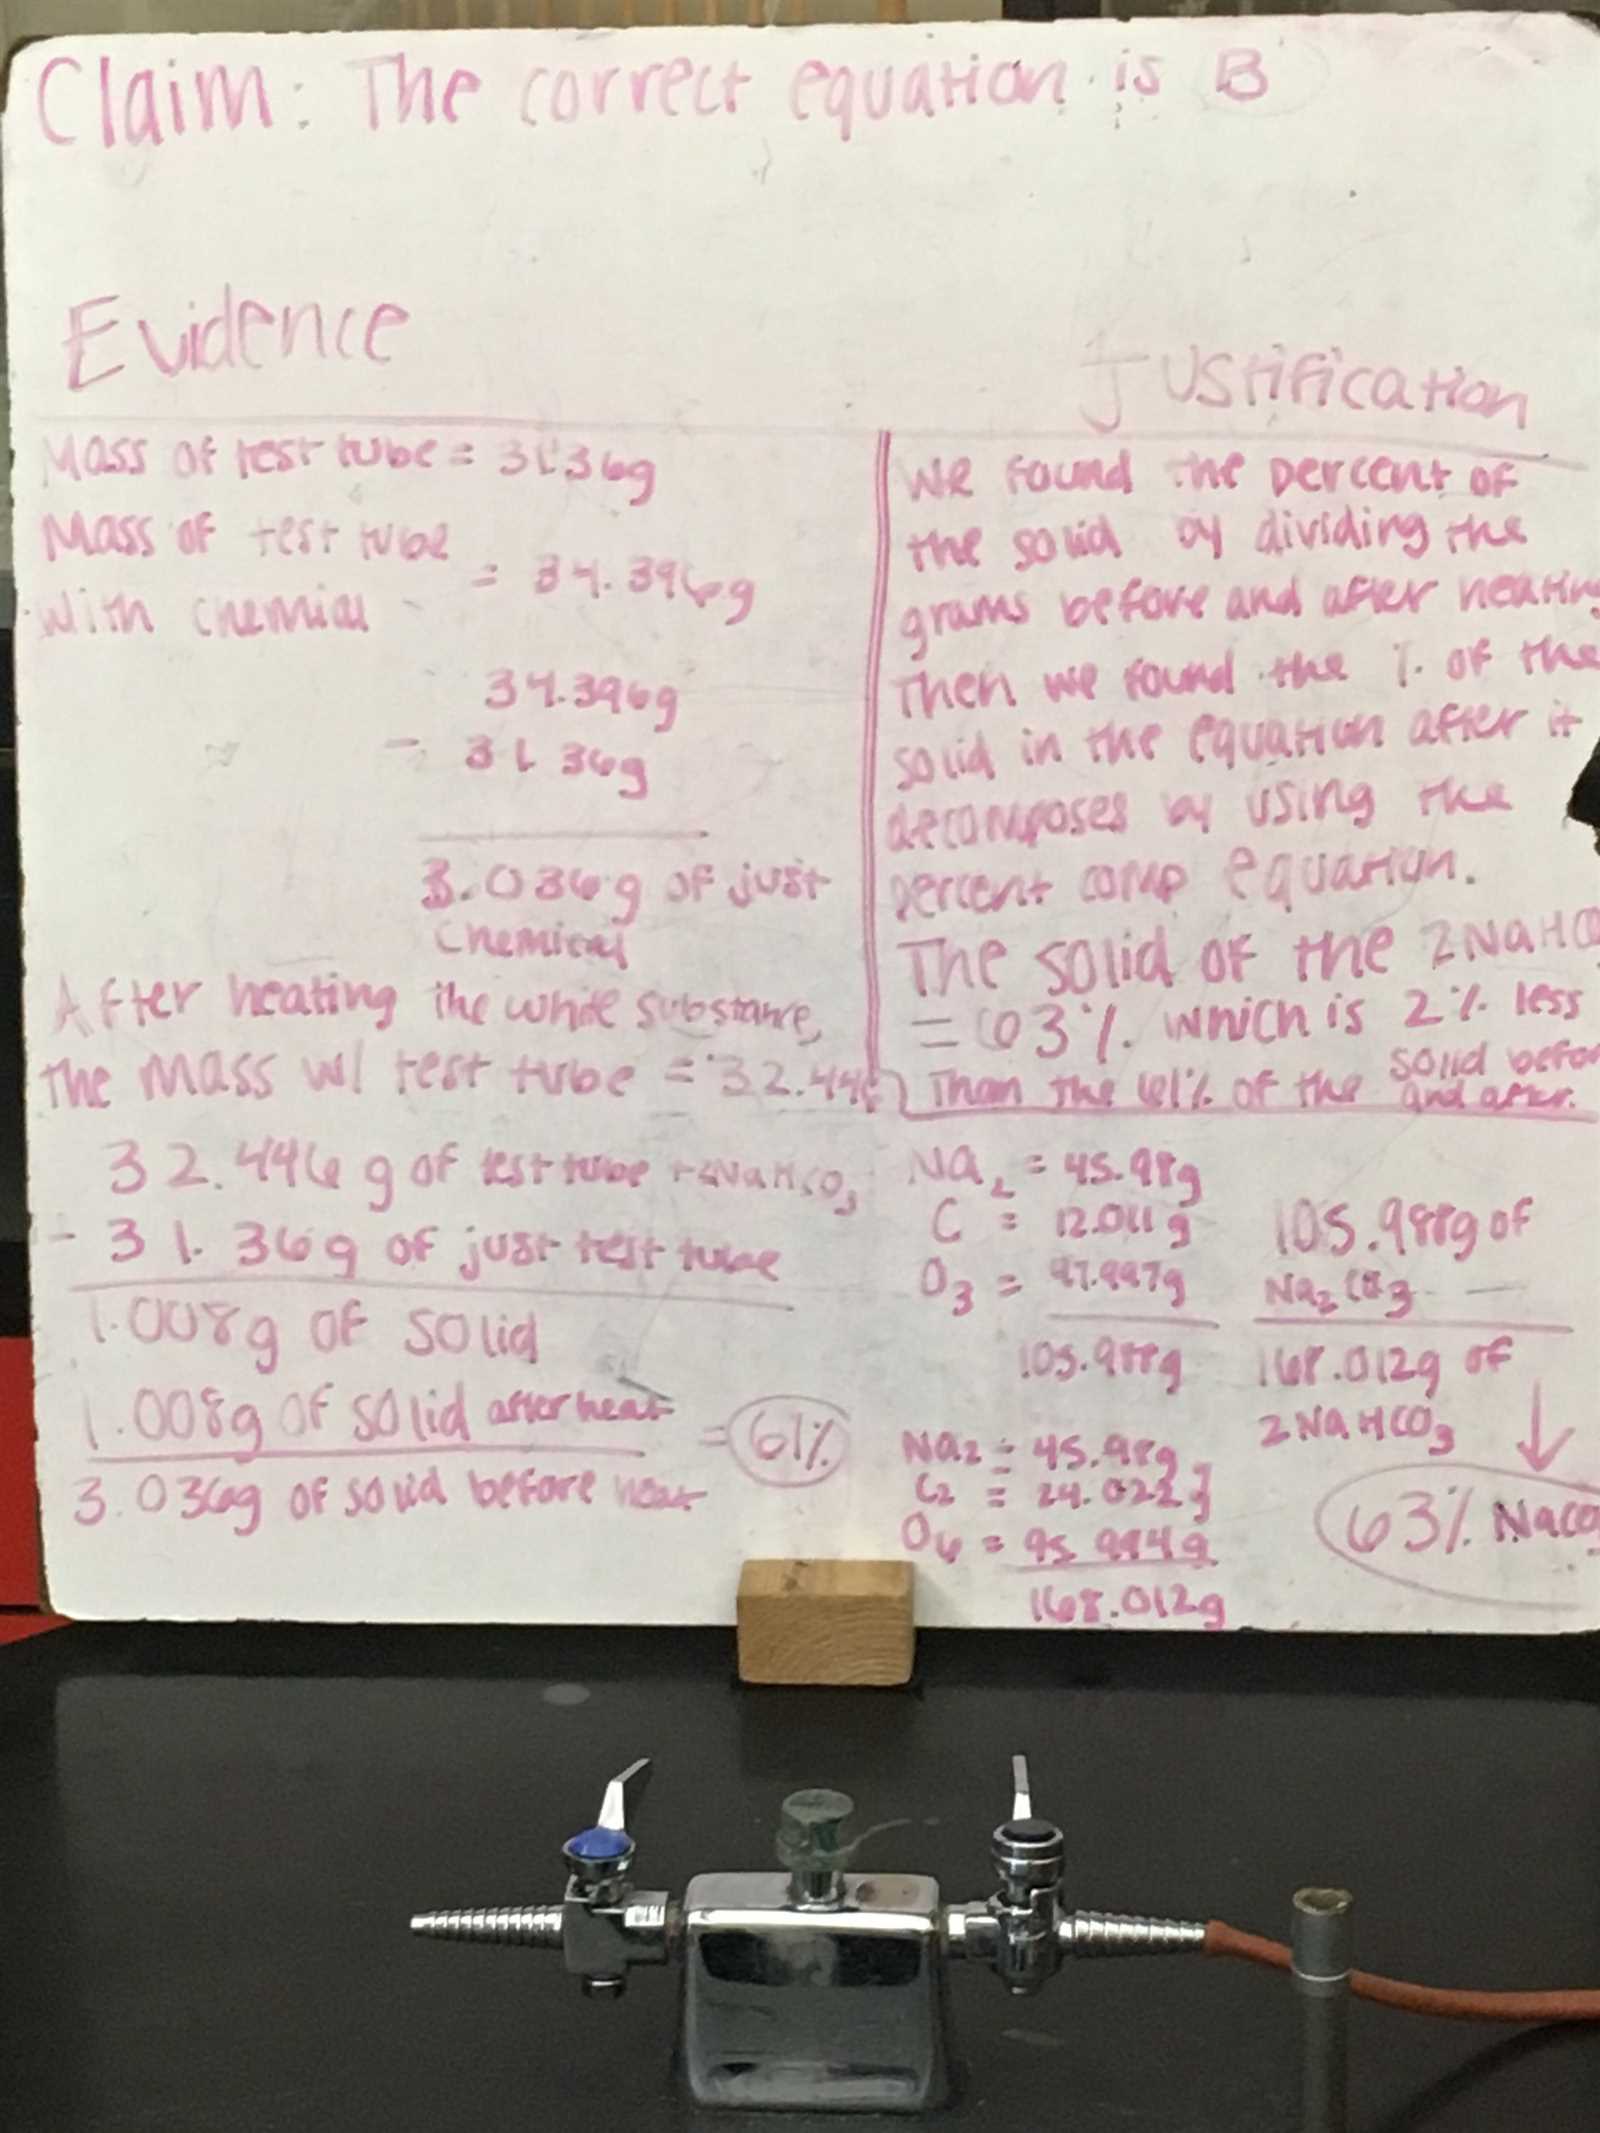 Claim: The correct equation is B
Evidence
Mass of test tube = 31.36g
Mass of test tube
with chemical
= 34.396g
34.396g
- 31.36g
3.036g of just
chemical
After heating the white substance,
the mass w/ test tube = 32.446
32.446 g of test tube + 2NaHCO3
- 31.36g of just test tube
1.008g of solid
1.008g of solid after heat
= 61%
3.036g of solid before heat
Justification
We found the percent of
the solid by dividing the
grams before and after heating
Then we found the % of the
solid in the equation after it
decomposes by using the
percent comp equation.
The solid of the 2NaHCO
= 63% which is 2% less
Than the 61% of the solid before
and after.
Na2 = 45.98g
C = 12.011g
O3 = 47.997g
105.988g
105.988g of
Na2CO3
168.012g of
2NaHCO3
Na2 = 45.98g
C2 = 24.022g
O6 = 95.994g
168.012g
63% NaCO